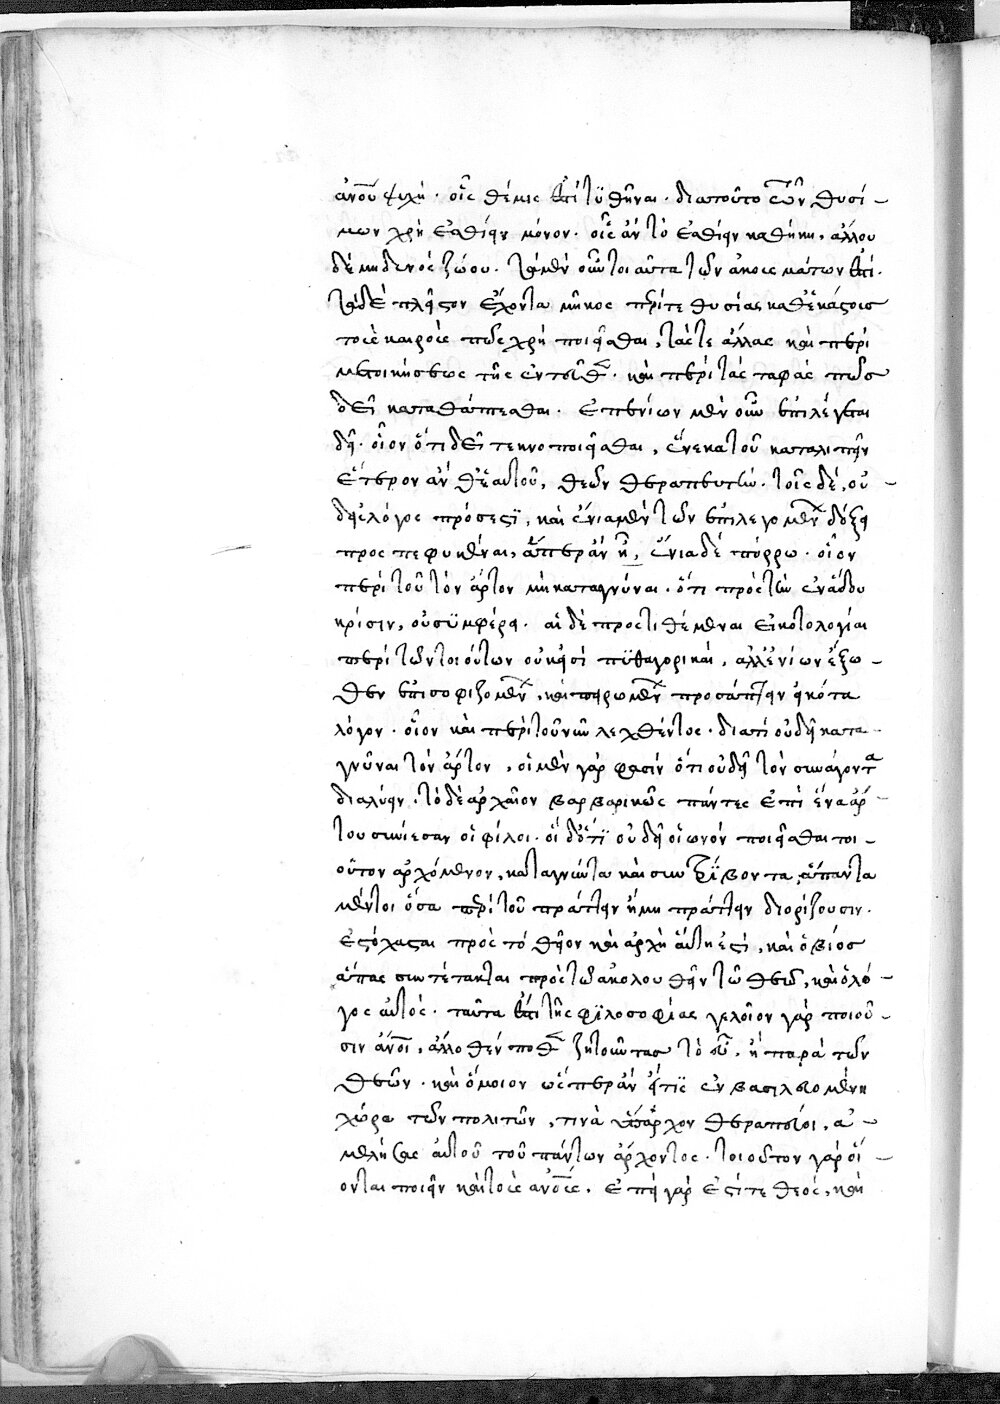 ἀνου ψυχή. οἷς θέμις ἐστὶ τυθῆναι. διατοῦτο τῶν θυσί-
μων χρὴ ἐσθίειν μόνον. οἷς ἂν τὸ ἐσθίειν καθήκη, ἄλλου
δὲ μηδενὸς ζώου. τὰ μὲν οὖν τοιαῦτα τῶν ἀκουσμάτων ἐστί.
τὰ δὲ πλεῖστον ἔχοντα μῆκος περί τε θυσίας καθ' ἑκάστους
τοὺς καιροὺς πῶς χρὴ ποιεῖσθαι, τάς τε ἄλλας καὶ περὶ
μετοικήσεως τῆς ἐντεῦθ. καὶ περὶ τὰς ταφὰς πῶς
δεῖ καταθάπτεσθαι. ἐπενίων μὲν οὖν ἐπιλέγεται
δεῖ. οἷον ὅτι δεῖ τεκνοποιεῖσθαι, ἕνεκα τοῦ καταλιπεῖν
ἕτερον ἀνθ' ἑαυτοῦ, θεῶν θεραπευτήν. τοῖς δὲ, οὐ-
δεὶς λόγος πρόσεστι, καὶ ἔνια μὲν τῶν ἐπιλεγομέν δόξει
προσπεφυκέναι, ἅπερ ἂν ἦ, ἔνια δὲ πόρρω. οἷον
περὶ τοῦ τὸν ἄρτον μὴ καταγνύναι. ὅτι πρὸς τὴν ἐν ἅδου
κρίσιν, οὐ συμφέρει. αἱ δὲ προστιθέμεναι εἰκοτολογίαι
περὶ τῶν τοιούτων οὐκ εἰσὶ πυθαγορικαὶ, ἀλλ' ἐνίων ἔξω-
θεν ἐπισοφιζομέν, καὶ πειρωμέν προσάπτειν εἰκότα
λόγον. οἷον καὶ περὶ τοῦ νῦν λεχθέντος. διατί οὐ δεῖ κατα-
γνύναι τὸν ἄρτον, οἱ μὲν γάρ φασιν ὅτι οὐ δεῖ τὸν συνάγοντα
διαλύειν. τὸ δὲ ἀρχαῖον βαρβαρικῶς πάντες ἐπὶ ἕνα ἄρ-
τον συνίεσαν οἱ φίλοι. οἱ δ' ὅτι οὐ δεῖ οἰωνὸν ποιεῖσθαι τοι-
οῦτον ἀρχόμενον, καταγνύντα καὶ συντρίβοντα, ἅπαντα
μέντοι ὅσα περὶ τοῦ πράττειν ἢ μὴ πράττειν διορίζουσιν.
ἐστόχασται πρὸς τὸ θεῖον καὶ ἀρχὴ αὕτη ἐστί, καὶ ὁ βίος
ἅπας συντέτακται πρὸς τὸ ἀκολουθεῖν τῶ θεῶ, καὶ ὁ λό-
γος αὐτὸς. ταῦτα ἐστὶ τῆς φιλοσοφίας γελοῖον γὰρ ποιοῦ-
σιν ἄνοι, ἄλλοθέν ποθ ζητοῦντες τὸ εὖ, ἢ παρὰ τῶν
θεῶν. καὶ ὅμοιον ὥσπερ ἂν εἴ τις ἐν βασιλευομένη
χώρα τῶν πολιτῶν, τινὰ ὕπαρχον θεραπεύοι, ἀ-
μελήσας αὐτοῦ τοῦ πάντων ἄρχοντος. τοιοῦτον γὰρ οἴ-
ονται ποιεῖν καὶ τοὺς ἀνοὺς. ἐπεὶ γὰρ ἔστί τε θεός, καὶ